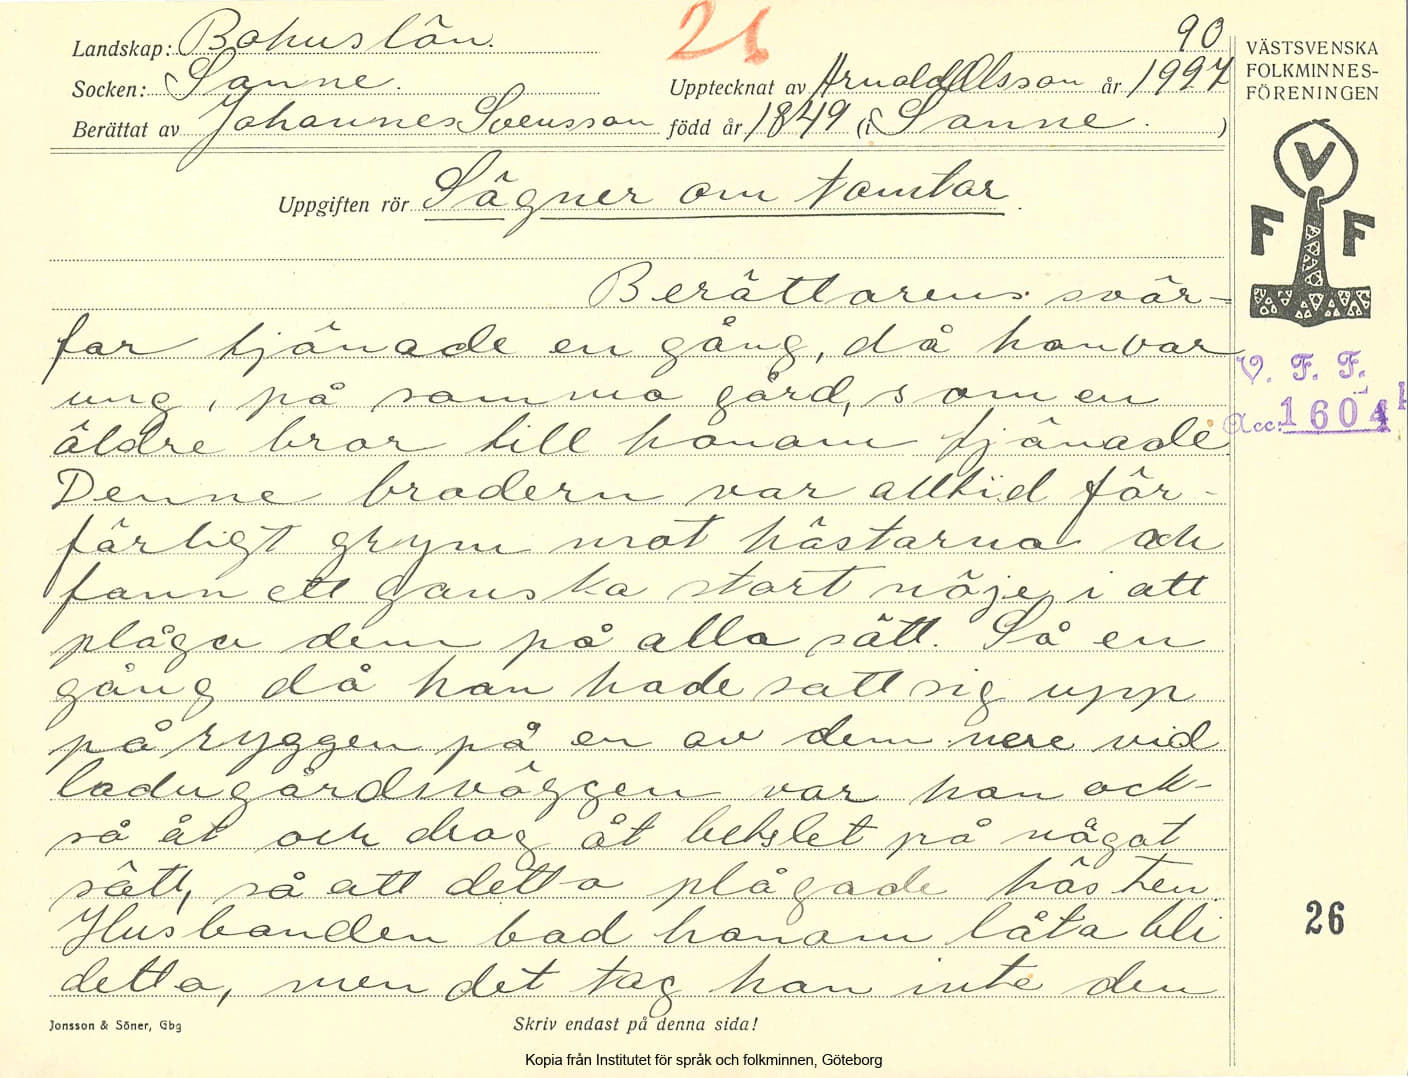 26
90
Landskap: Bohuslän.
Socken: Sanne.
Upptecknat av Arnold Olsson år 1927
Berättat av Johannes Svensson född år 1849 (i Sanne.)
Uppgiften rör Sägner om tomtar.
Berättarens svär-
far tjänade en gång, då han var
ung, på samma gård, som en
äldre bror till honom tjänade
Denne brodern var alltid för-
färligt grym mot hästarna och
fann ett ganska stort nöje i att
plåga dem på alla sätt. Så en
gång då han hade satt sig upp
på ryggen på en av dem nere vid
ladugårdsväggen var han ock-
så åt och drog åt betslet på något
sätt, så att detta plågade hästen
Husbonden bad honom låta bli
detta, men det tog han inte den
Jonsson & Söner, Gbg
Skriv endast på denna sida!
Kopia från Institutet för språk och folkminnen, Göteborg
VÄSTSVENSKA
FOLKMINNES-
FÖRENINGEN
V
F F
V. F. F.
Acc: 1604
26